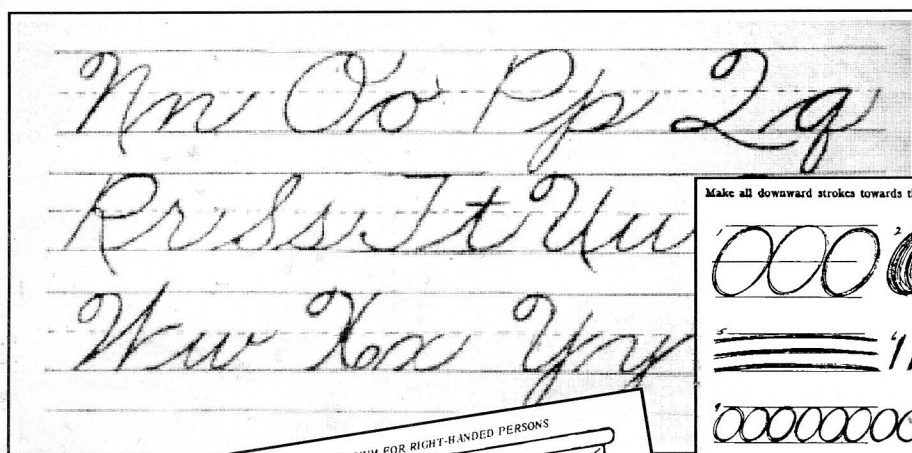 Nn Oo Pp Qq
Rr Ss Tt Uu
Ww Xx Yy
Make all downward strokes towards
1 2
5
9
FOR RIGHT-HANDED PERSONS